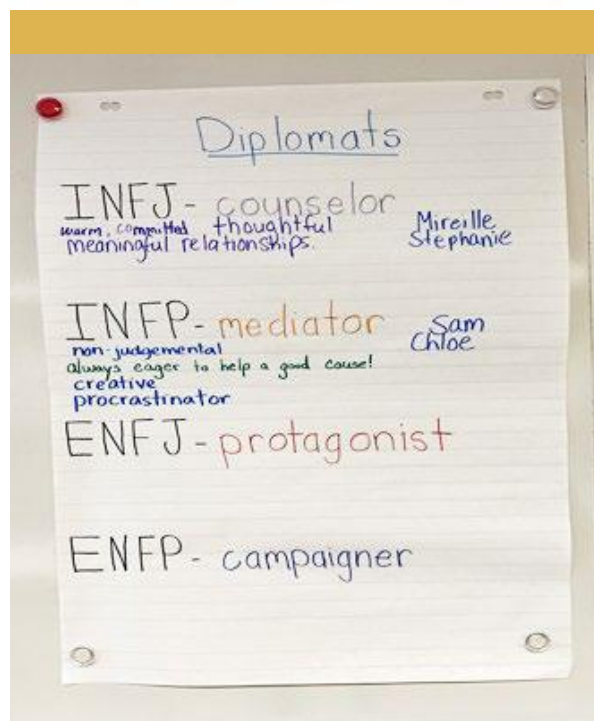 Diplomats
INFJ - counselor
warm, committed thoughtful
meaningful relationships.
Mireille
Stephanie
INFP - mediator
non-judgemental
always eager to help a good cause!
creative
procrastinator
Sam
Chloe
ENFJ - protagonist
ENFP - campaigner